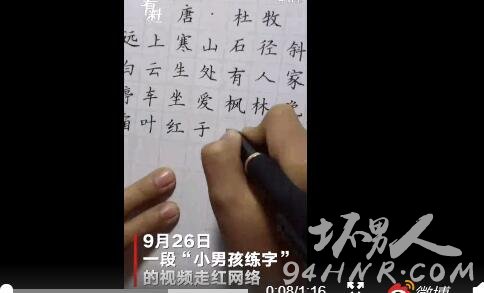 有料
唐·杜牧
远上寒山石径斜
白云生处有人家
停车坐爱枫林晚
霜叶红于
9月26日
一段“小男孩练字”
的视频走红网络
坏男人
94HNR.COM
0:08/1:16
微博